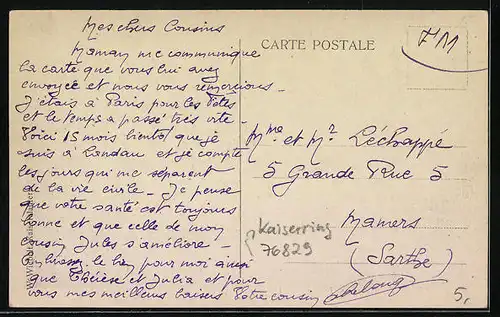 Mes chers Cousins
Maman me communique
la carte que vous lui avez
envoyée et nous vous remercions -
J'étais à Paris pour les fêtes
et le temps a passé très vite -
Voici 15 mois bientôt que je
suis à Landau et je compte
les jours qui me séparent
de la vie civile - Je pense
que votre santé est toujours
bonne et que celle de mon
cousin Jules s'améliore -
le bien pour moi ainsi
que Thérèse et Julia et pour
vous mes meilleurs baisers Votre cousin
CARTE POSTALE
7/11
Mme et Mr Léchappé
5 Grande Rue 5
Mamers
(Sarthe)
Kaiserring
76829
5,